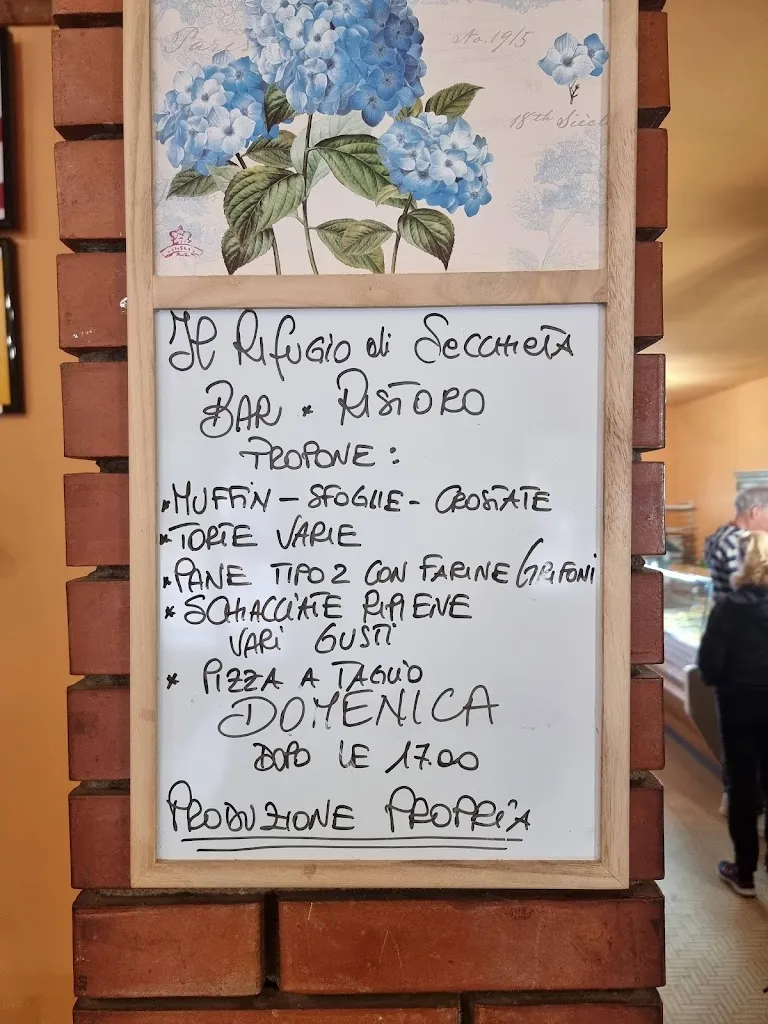 Paris
No. 1915
18th Siècl
Il Rifugio di SeccHieTA
BAR * RISTORO
PROPONE:
* MUFFIN - SFOGLIE - CROSTATE
* TORTE VARIE
* PANE TIPO 2 CON FARINE GRIFONI
* SCHIACCIATE RIPIENE
VARI GUSTI
* PIZZA A TAGLIO
DOMENICA
DOPO LE 17.00
PRODUZIONE PROPRIA